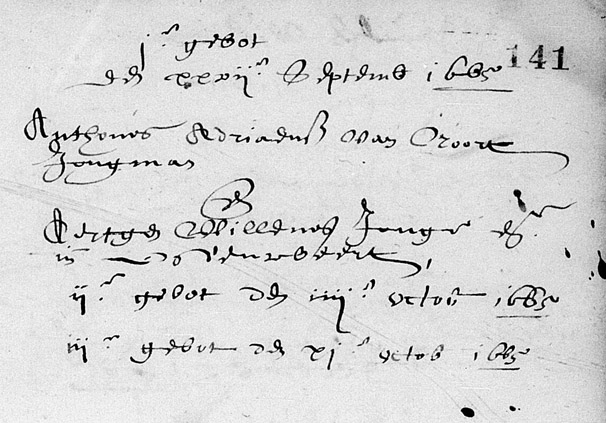 j.e gebot
141
den xxvij.e Septemb 1665
Anthonis Adriaens van Oort
Jongman
en
Aertgen Willems Jonge
in
ij.e gebot den iiij.e octob 1665
iij.e gebot den xj.e octob 1665